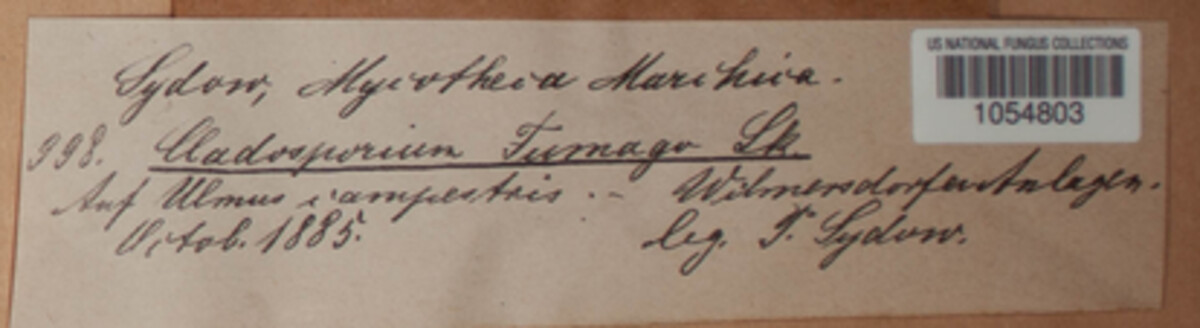 US NATIONAL FUNGUS COLLECTIONS
1054803
Sydow, Mycotheca Marchica.
998. Cladosporium Fumago Lk.
Auf Ulmus campestris. – Wilmersdorfer Anlagen.
Octob. 1885.
leg. P. Sydow.